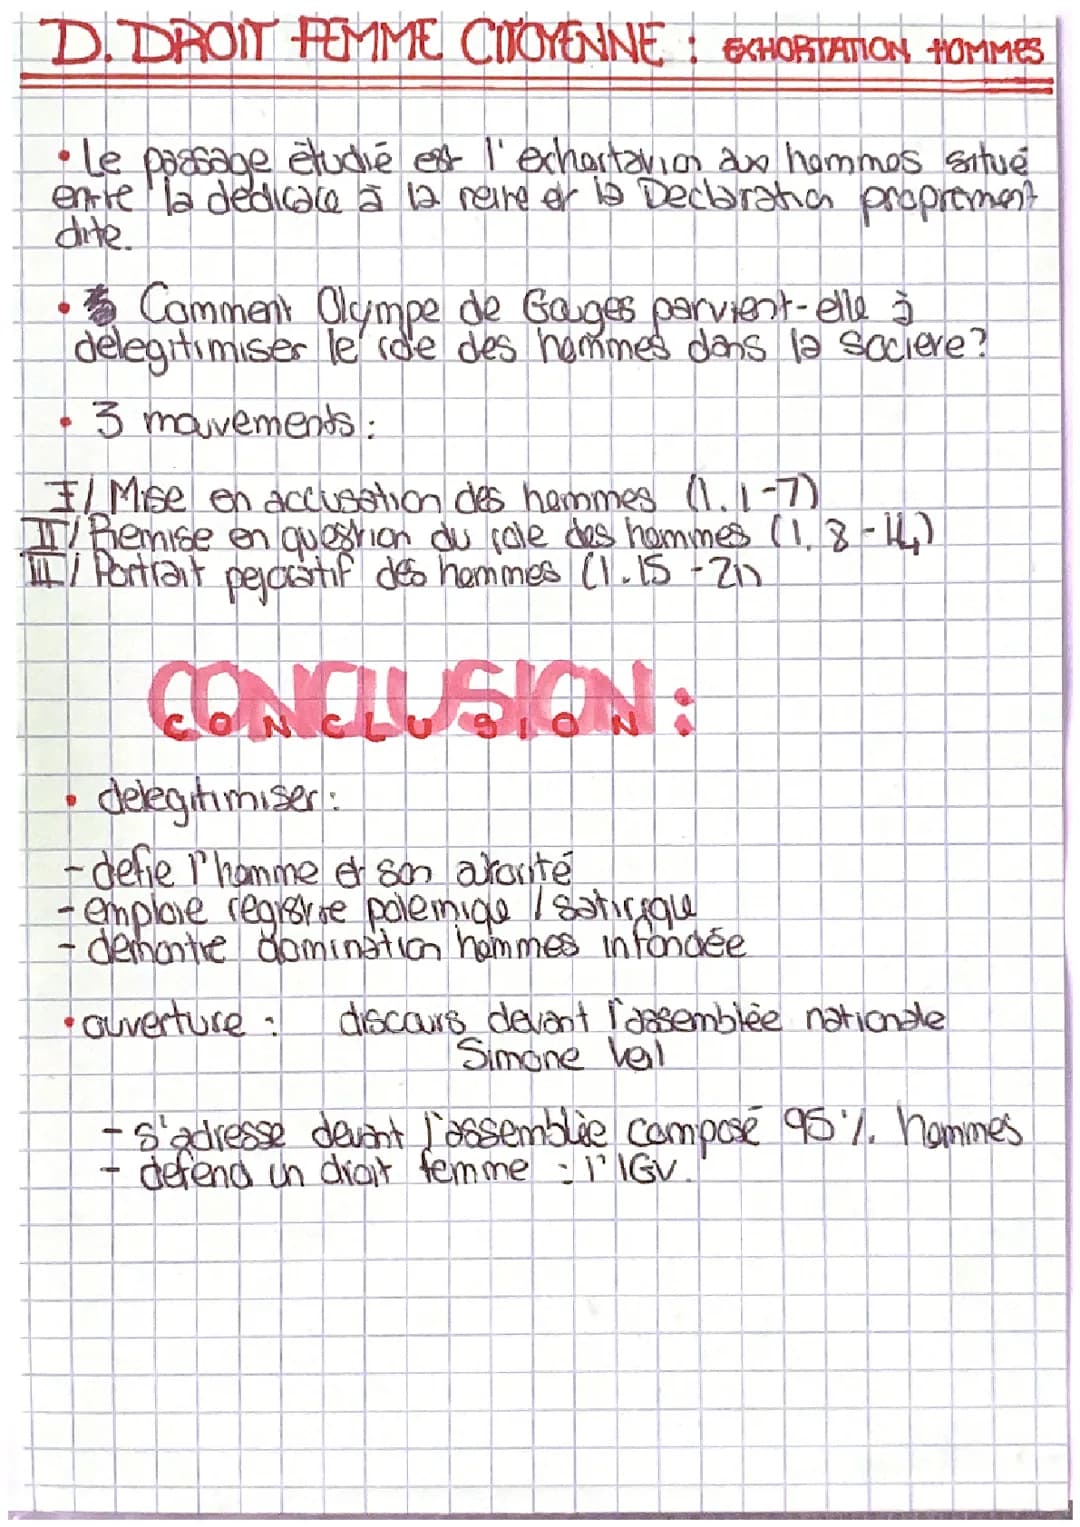 D. DROIT FEMME CITOYENNE : EXHORTATION HOMMES
• Le passage étudié est l'exhortation aux hommes situé
entre la dédicace à la reine et la Declaration proprement
dite.
• Comment Olympe de Gouges parvient-elle à
delegitimiser le role des hommes dans la societe?
• 3 mouvements :
I/ Mise en accusation des hommes (l. 1-7)
II/ Remise en question du role des hommes (l. 8-14)
III/ Portrait pejoratif des hommes (l. 15-21)
CONCLUSION :
• delegitimiser :
- defie l'homme et son autorité
- emploie registre polemique / satirique
- demontre domination hommes infondée
• ouverture : discours devant l'assemblée nationale
Simone Veil
- s'adresse devant l'assemblée composé 95% hommes
- defend un droit femme : l'IGV.